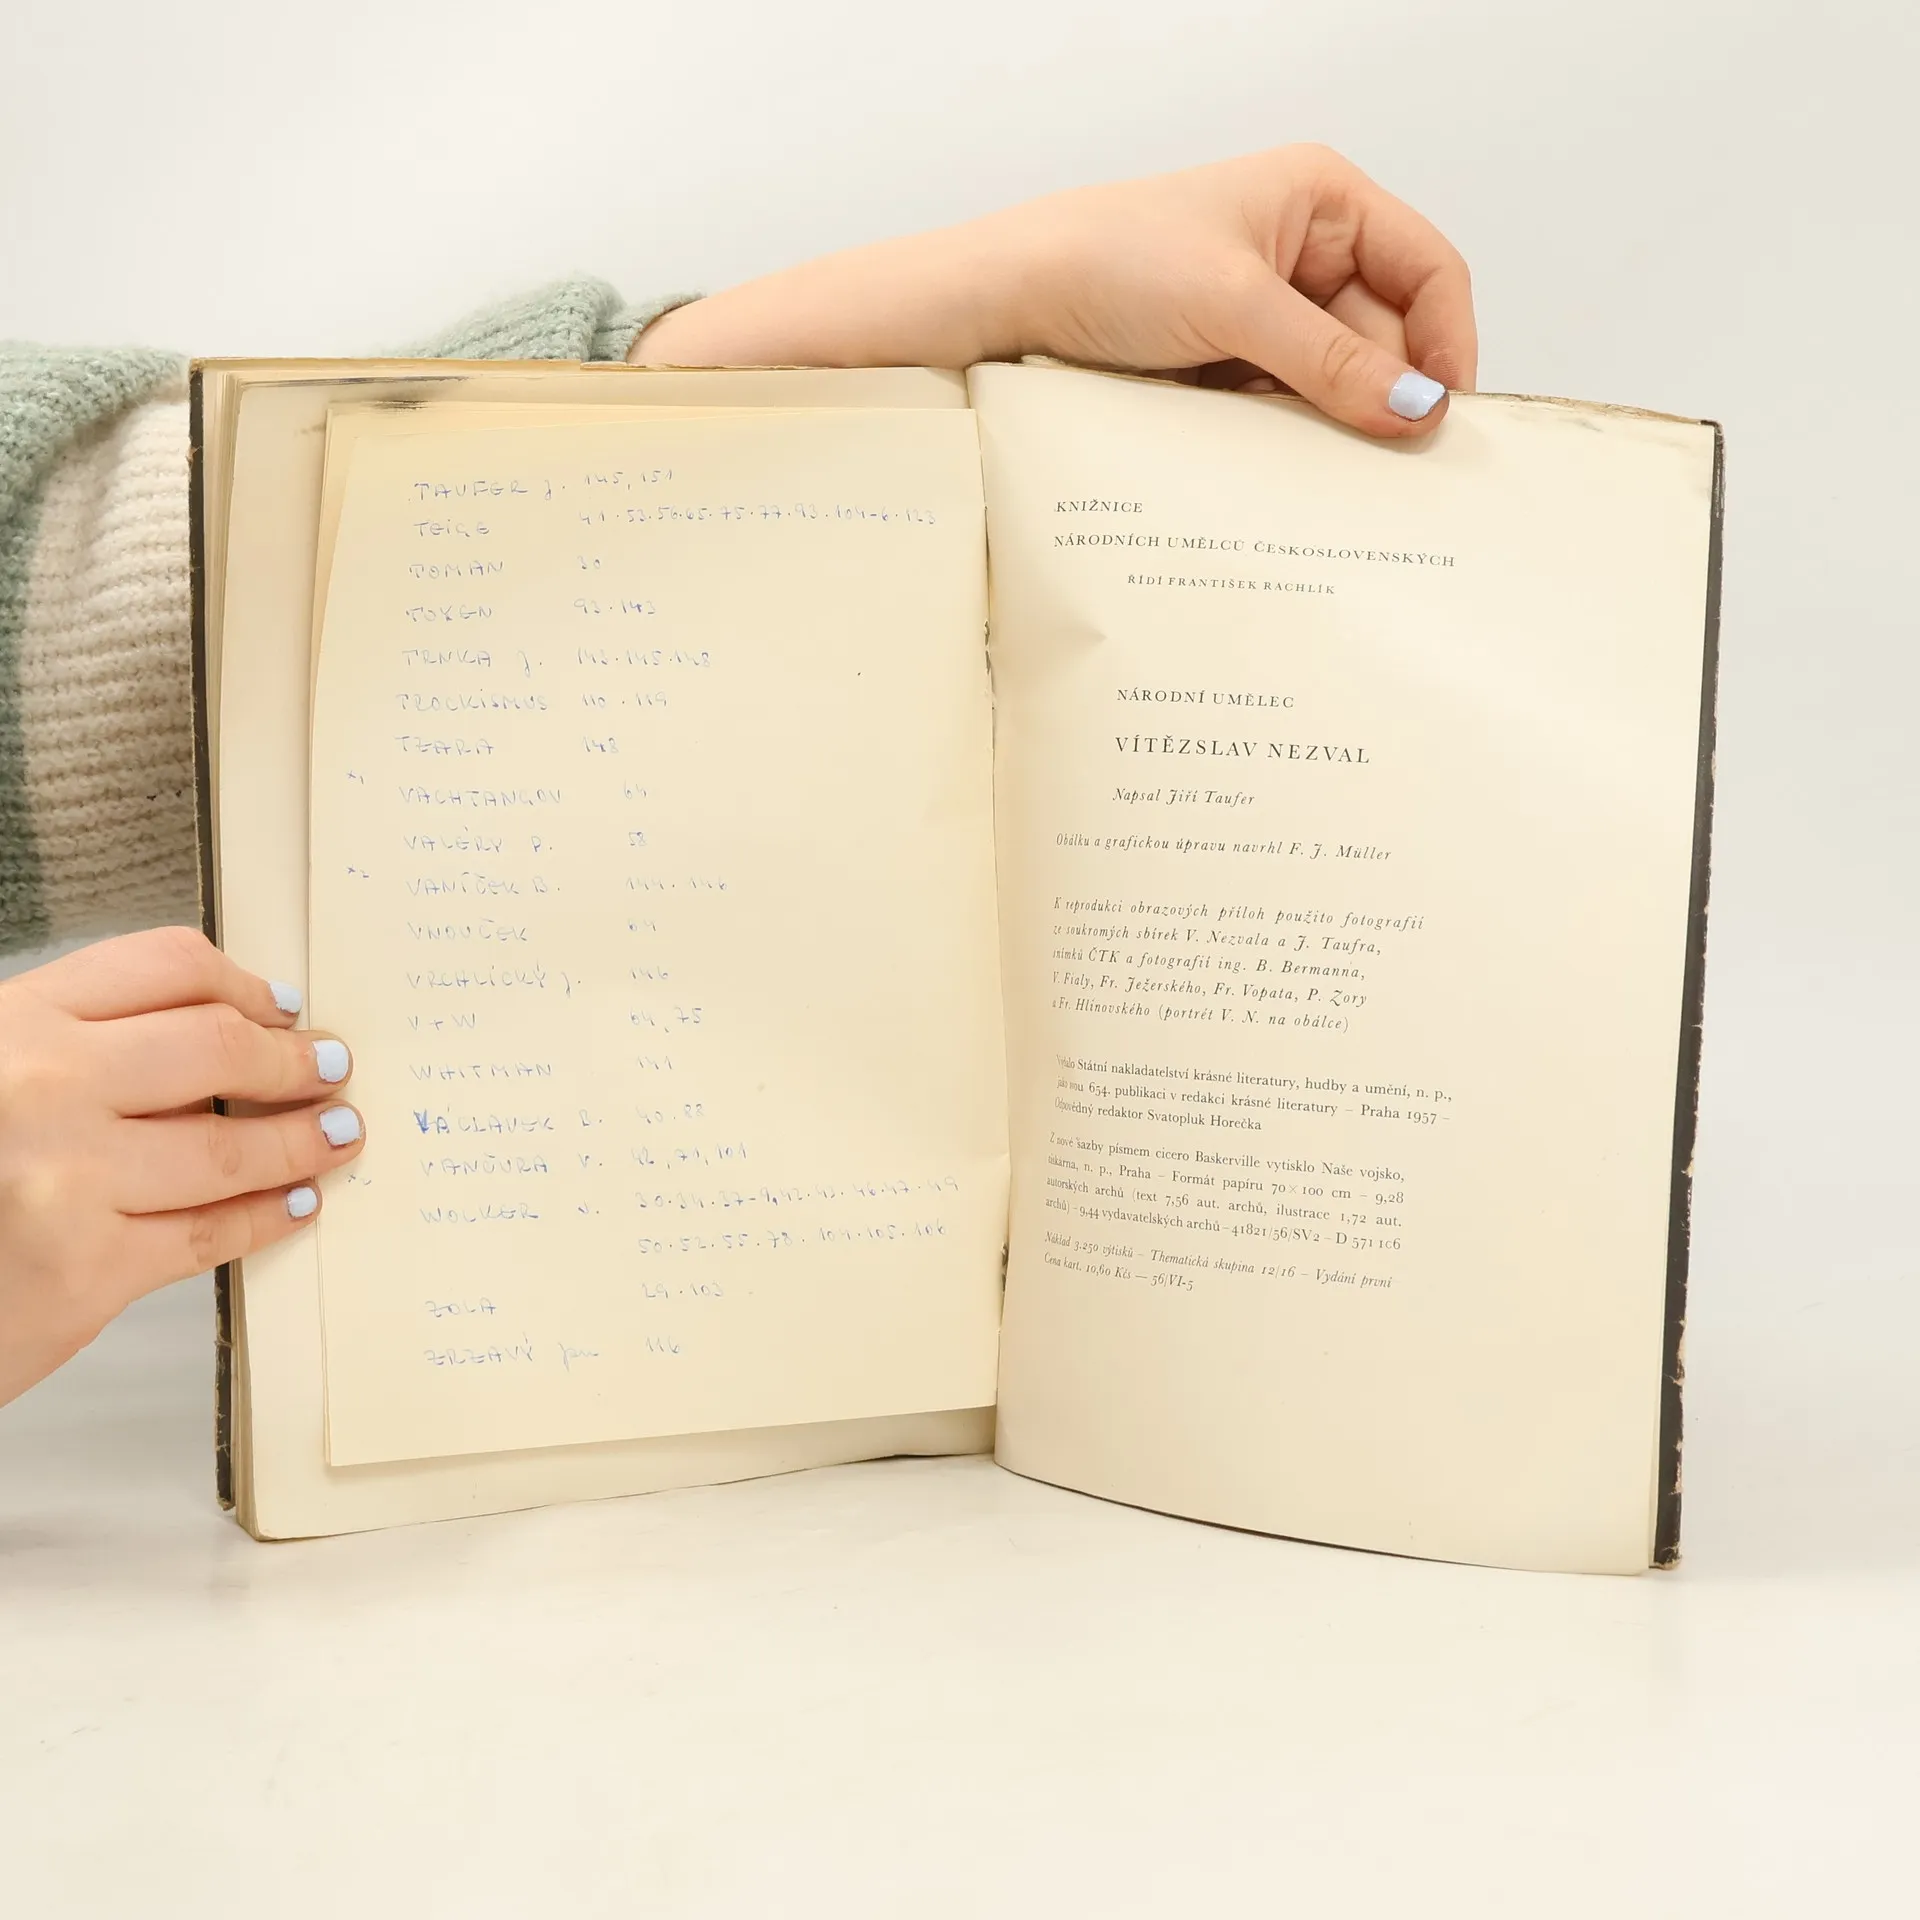 TAUFER J. 145, 151
TEIGE 41·53·56·65·75·77·93·104-6·123
TOMAN 30
TOYEN 93·143
TRNKA J. 143·145·148
TROCKISMUS 110·119
TZARA 148
x1
VACHTANGOV 64
VALÉRY P. 58
x2
VANÍČEK B. 144·146
VNOUČEK 64
VRCHLICKÝ J. 146
V+W 64, 75
WHITMAN 141
VÁCLAVEK B. 40·88
VANČURA V. 42, 71, 101
x2
WOLKER J. 30·34·37-9,42·43·46·47·49
50·52·55·78·104·105·106
ZOLA 29·103
ZRZAVÝ Jan 116
KNIŽNICE
NÁRODNÍCH UMĚLCŮ ČESKOSLOVENSKÝCH
ŘÍDÍ FRANTIŠEK RACHLÍK
NÁRODNÍ UMĚLEC
VÍTĚZSLAV NEZVAL
Napsal Jiří Taufer
Obálku a grafickou úpravu navrhl F. J. Müller
K reprodukci obrazových příloh použito fotografií
ze soukromých sbírek V. Nezvala a J. Taufra,
snímků ČTK a fotografií ing. B. Bermanna,
V. Fialy, Fr. Ježerského, Fr. Vopata, P. Zory
a Fr. Hlinovského (portrét V. N. na obálce)
Vydalo Státní nakladatelství krásné literatury, hudby a umění, n. p.,
jako svou 654. publikaci v redakci krásné literatury – Praha 1957 –
Odpovědný redaktor Svatopluk Horečka
Z nové sazby písmem cicero Baskerville vytisklo Naše vojsko,
tiskárna, n. p., Praha – Formát papíru 70×100 cm – 9,28
autorských archů (text 7,56 aut. archů, ilustrace 1,72 aut.
archů) – 9,44 vydavatelských archů – 41821/56/SV2 – D 571 106
Náklad 3.250 výtisků – Thematická skupina 12/16 – Vydání první
Cena kart. 10,60 Kčs — 56/VI-5